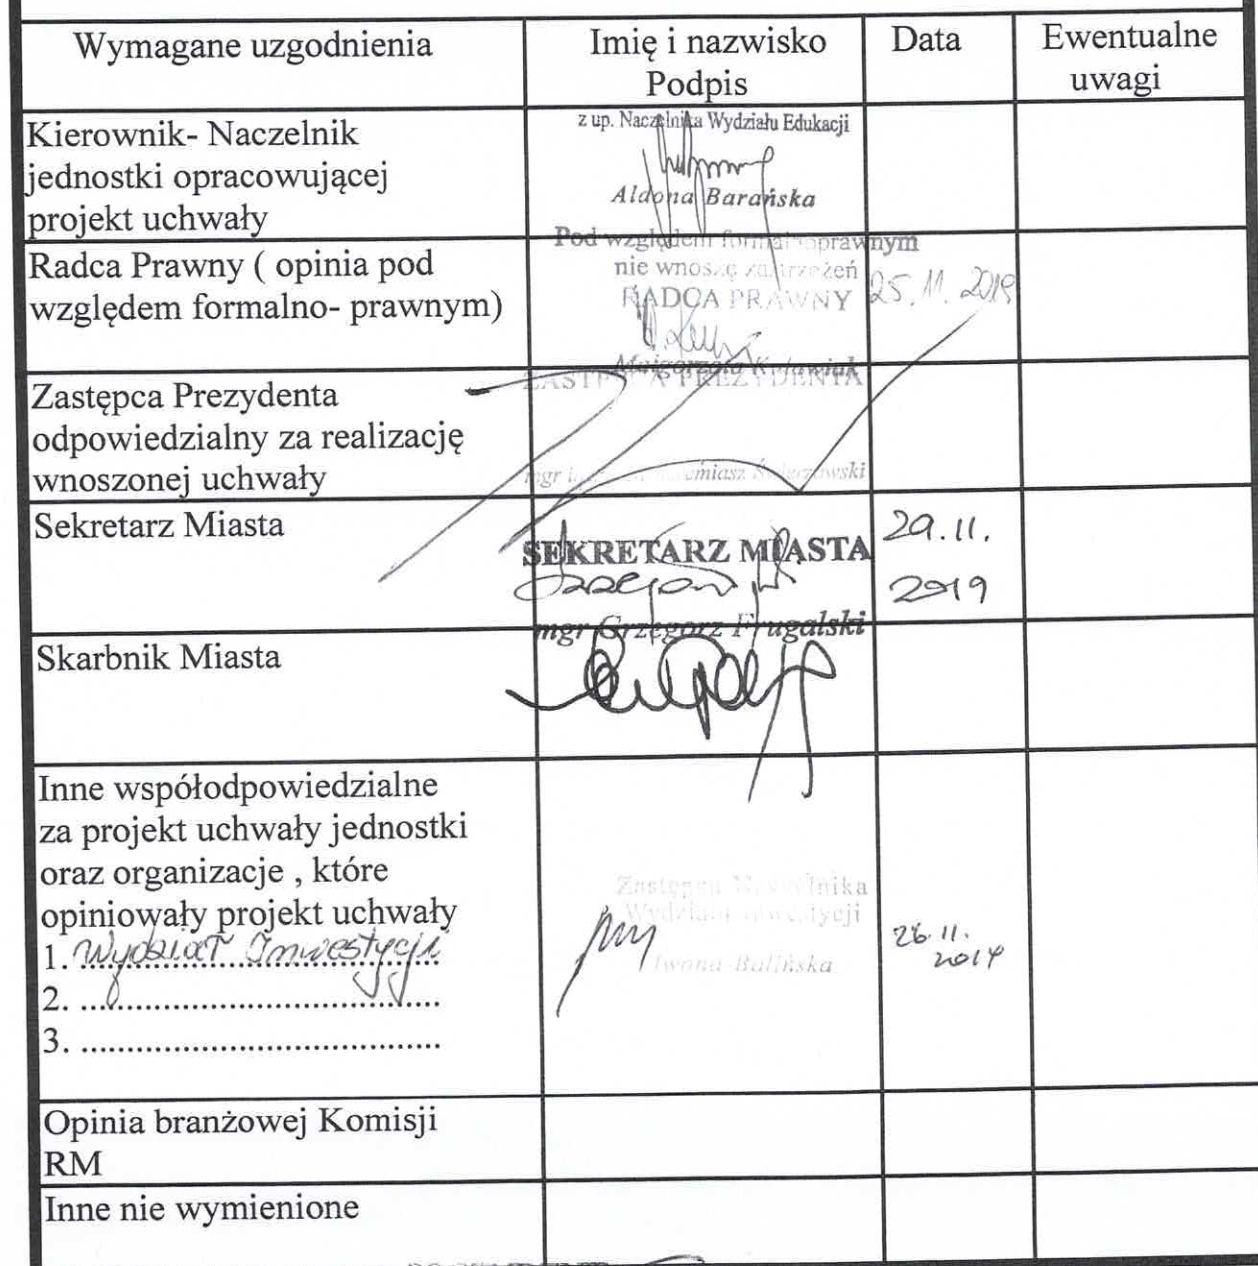 Wymagane uzgodnienia
Imię i nazwisko
Podpis
Data
Ewentualne
uwagi
Kierownik- Naczelnik
jednostki opracowującej
projekt uchwały
z up. Naczelnika Wydziału Edukacji
Aldona Barańska
Radca Prawny ( opinia pod
względem formalno- prawnym)
Pod względem formalnoprawnym
nie wnoszę zastrzeżeń
RADCA PRAWNY
Małgorzata
25.11.2019
Zastępca Prezydenta
odpowiedzialny za realizację
wnoszonej uchwały
ZASTĘPCA PREZYDENTA
mgr
Sekretarz Miasta
SEKRETARZ MIASTA
mgr Grzegorz Frugalski
29.11.
2019
Skarbnik Miasta
Inne współodpowiedzialne
za projekt uchwały jednostki
oraz organizacje , które
opiniowały projekt uchwały
1. Wydział Inwestycji
2. ........................................
3. ........................................
Zastępca Naczelnika
Wydziału Inwestycji
Iwona Balińska
26.11.
2019
Opinia branżowej Komisji
RM
Inne nie wymienione